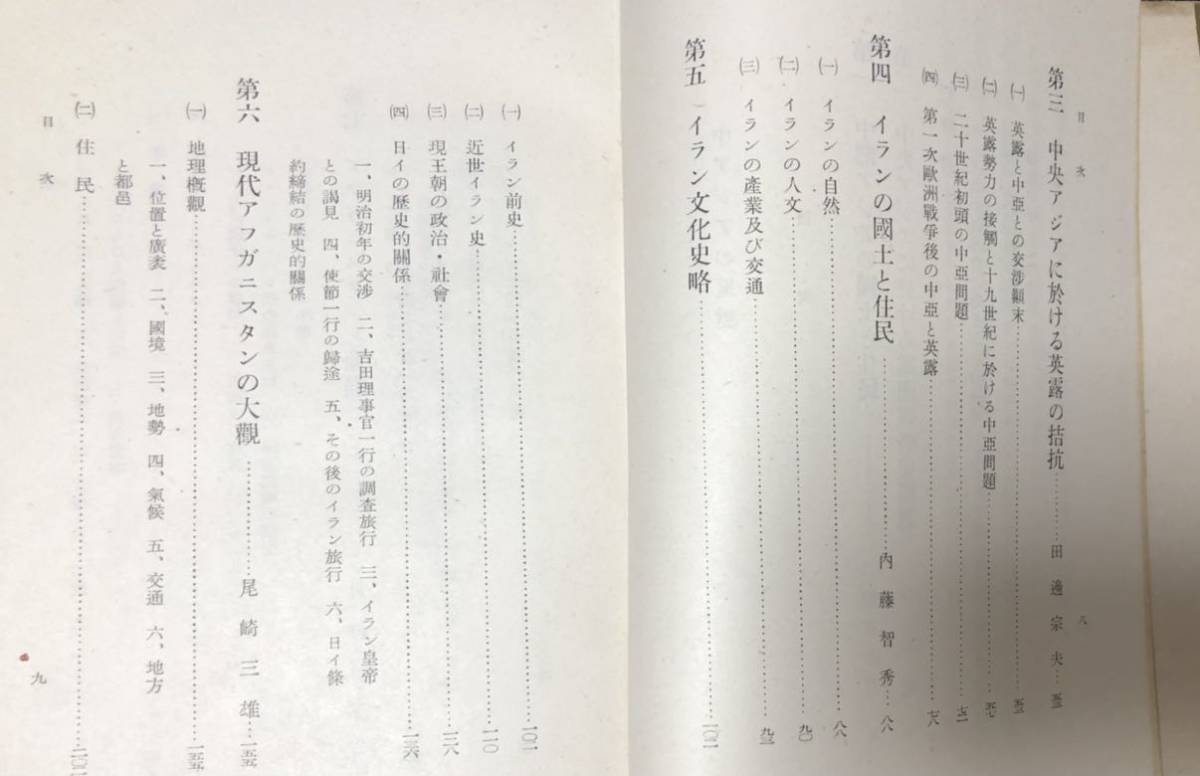 目次
八
第三 中央アジアに於ける英露の拮抗…………田邊宗夫…
㈠ 英露と中亞との交渉顚末…………
㈡ 英露勢力の接觸と十九世紀に於ける中亞問題…………
㈢ 二十世紀初頭の中亞問題…………
㈣ 第一次歐洲戰爭後の中亞と英露…………七八
第四 イランの國土と住民…………内藤智秀…八八
㈠ イランの自然…………八八
㈡ イランの人文…………九〇
㈢ イランの產業及び交通…………
第五 イラン文化史略…………一〇一
㈠ イラン前史…………一〇一
㈡ 近世イラン史…………一一〇
㈢ 現王朝の政治・社會…………一二八
㈣ 日イの歷史的關係…………一三六
一、明治初年の交涉 二、吉田理事官一行の調査旅行 三、イラン皇帝
との謁見 四、使節一行の歸途 五、その後のイラン旅行 六、日イ條
約締結の歷史的關係
第六 現代アフガニスタンの大觀…………尾崎三雄…一五五
㈠ 地理槪觀…………一五五
一、位置と廣袤 二、國境 三、地勢 四、氣候 五、交通 六、地方
と都邑
㈡ 住民…………二〇二
目次
九